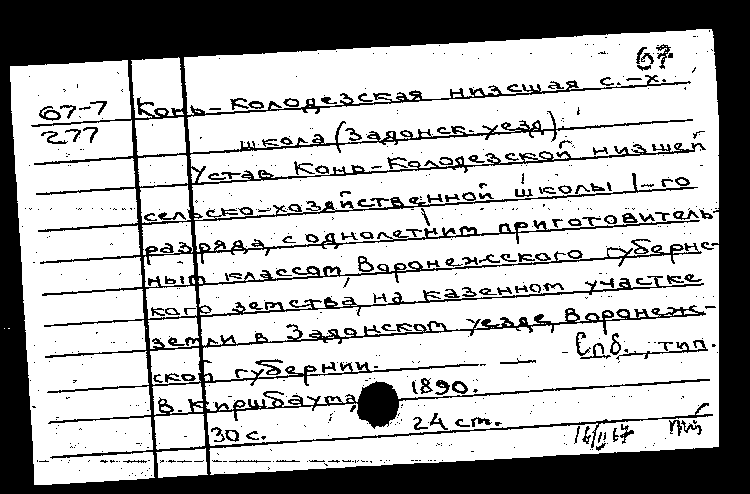 67
67-7 Конь-Колодезская низсшая с.-х.
277 школа (Задонск. уезд).
Устав Конь-Колодезской низшей
сельско-хозяйственной школы I-го
разряда, с однолетним приготовитель-
ным классом, Воронежского губернс-
кого земства, на казенном участке
земли в Задонском уезде, Воронеж-
ской губернии. — Спб., тип.
В. Киршбаума, 1890.
30 с. 24 см.
16/II 67